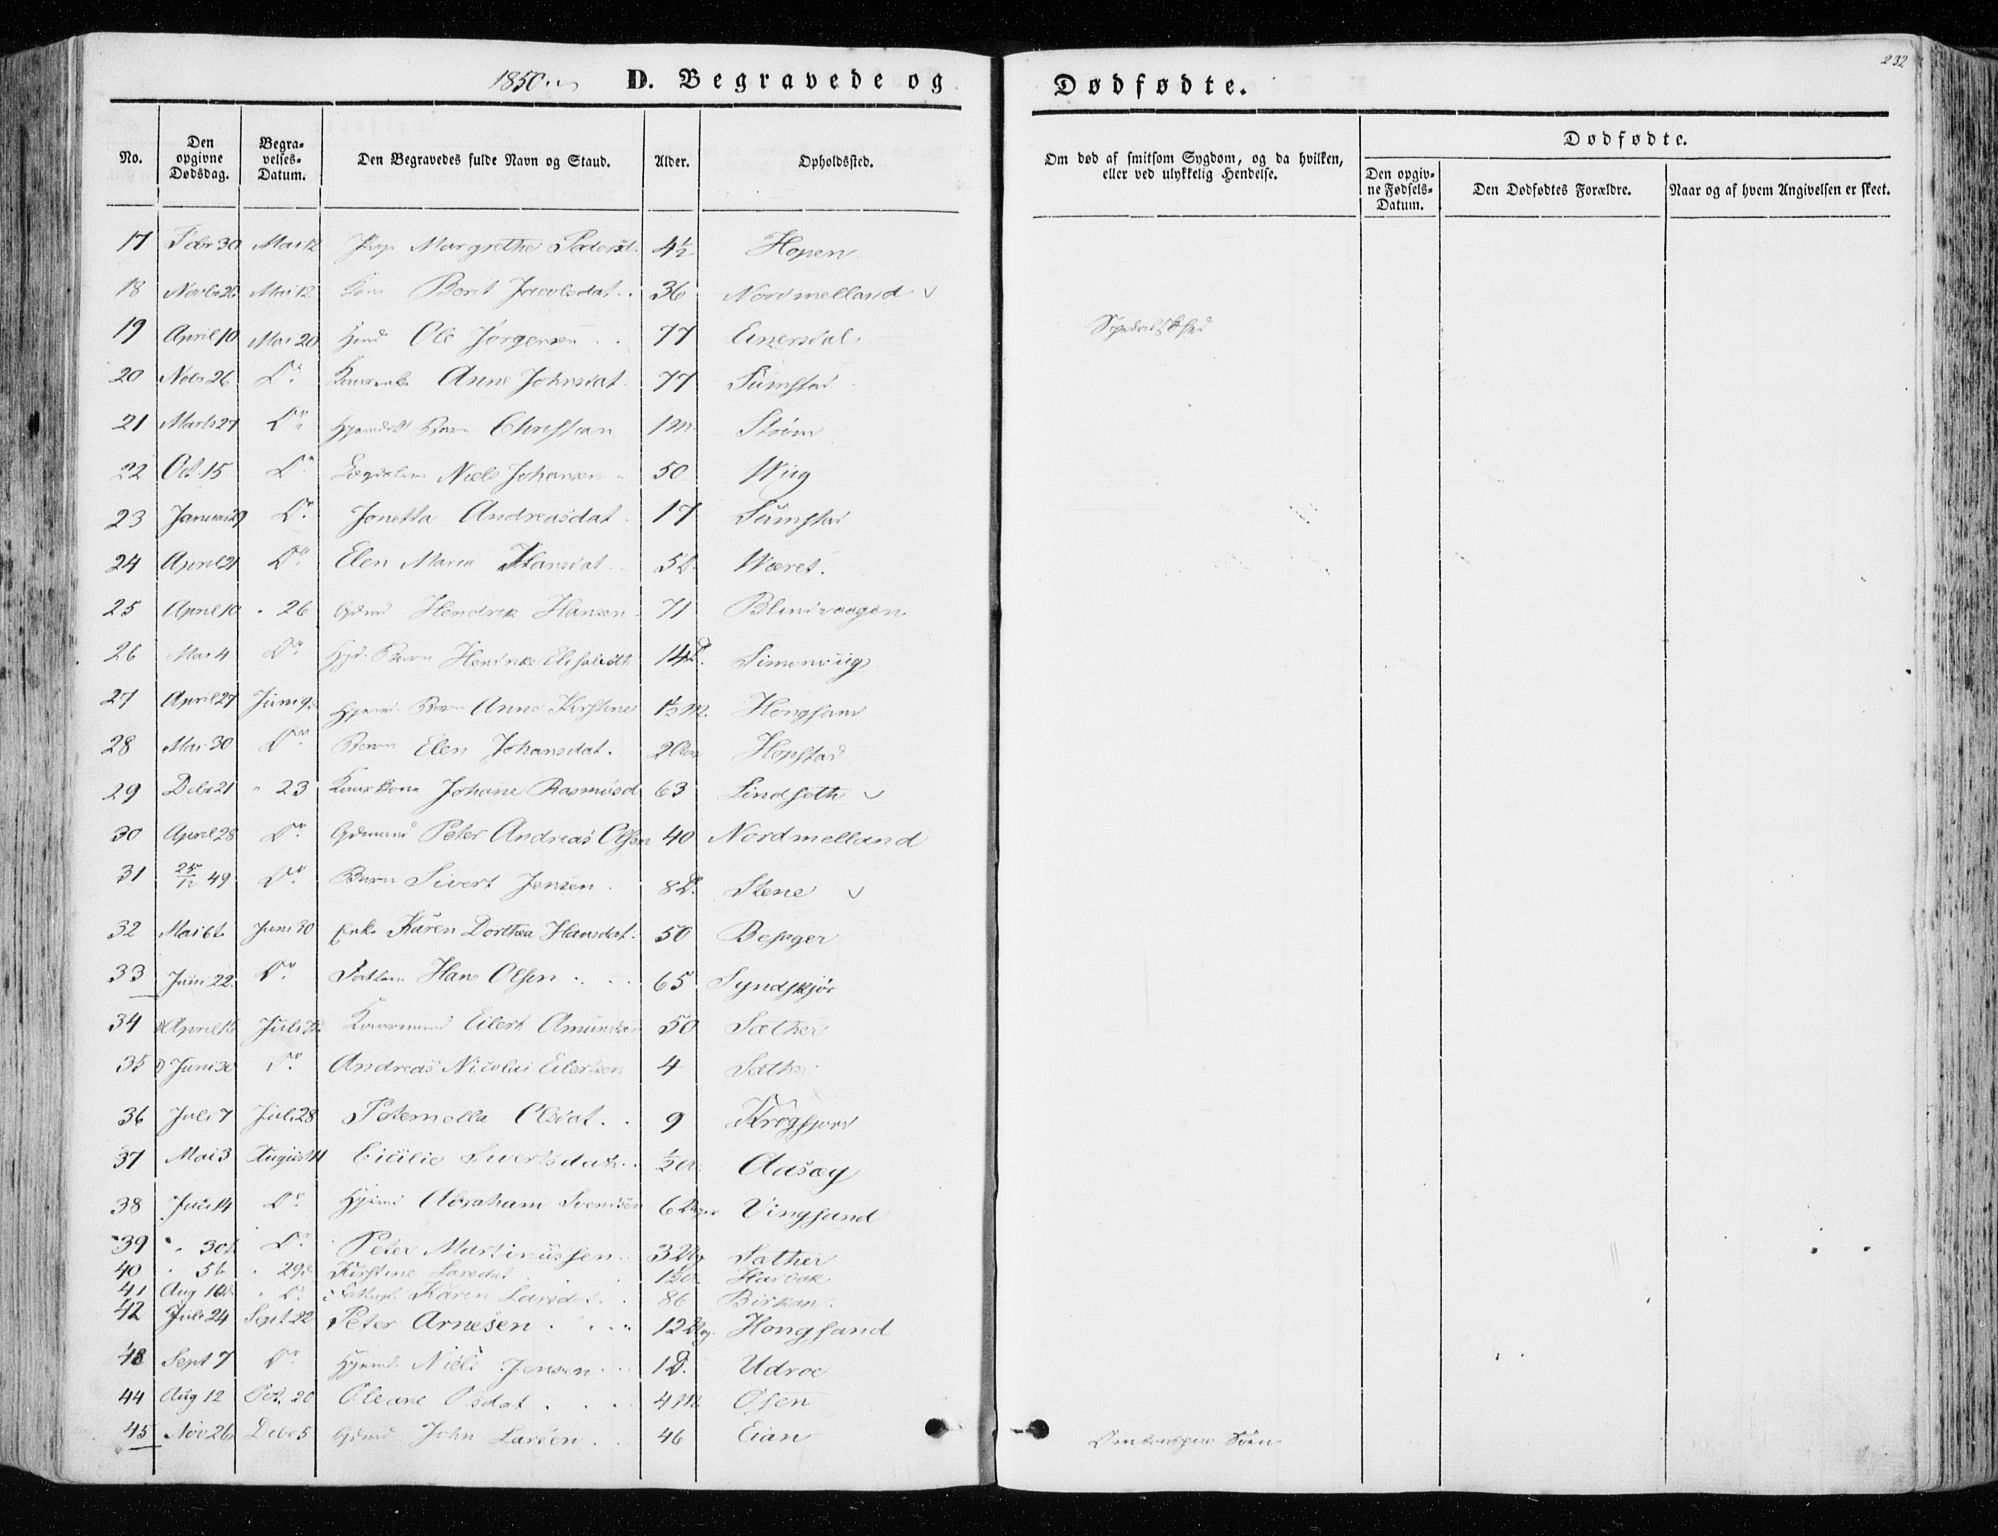 1850
D. Begravede og
Dødfødte.
232
No.
Den opgivne Dødsdag.
Begravelses-Datum.
Den Begravedes fulde Navn og Stand.
Alder.
Opholdssted.
Om død af smitsom Sygdom, og da hvilken, eller ved ulykkelig Hendelse.
Dødfødte.
Den opgivne Fødsels-Datum.
Den Dødfødtes Forældre.
Naar og af hvem Angivelsen er skeet.
17 Febr 30 Mai 12 Pige Margrethe Pedersd. 4½ Hopen
18 Novbr 26 Mai 12 Kone Berit Jacobsdat. 36 Nordmelland
19 April 10 Mai 20 Ole Jørgensen 77 Einersdal Spedalskhed
20 Nobr 26 Do Anne Johnsdat 77 Sumstad
21 Marts 27 Do Barn Christian 1 M. Strøm
22 Oct 15 Do Niels Johansen 50 Wiig
23 Januar 29 Do Jonetta Andreasdat 17 Sumstad
24 April 21 Do Elen Maria Hansdat 5 D. Været
25 April 10 " 26 Gdmd Hendrik Hansen 71 Blindvaagen
26 Mai 4 Do Barn Henrikke Elisabeth 14 D. Simonviig
27 April 27 Juni 9 Barn Anne Kirstine 1½ M. Hongsand
28 Mai 30 Do Barn Elen Johansdat. 2 Hopstad
29 Debr 21 " 23 Johane Rasmusd 63 Lindseth
30 April 28 Do Gdmand Peter Andreas Olsen 40 Nordmelland
31 25/12 49 Do Barn Sivert Jensen 8 D. Stene
32 Mai 6te Juni 30 Enke Karen Dorthea Hansdat. 50 Besager
33 Juni 22 Do Hans Olsen 65 Syndskjør
34 April 16 Juli Eilert Amundsen 50 Sæther
35 Juni 30 Do Andreas Nicolai Eilertsen 4 Sæther
36 Juli 7 Juli 28 Peternella Olsdat. 9 Krogfjord
37 Mai 3 August 11 Cicilie Sivertsdat. ½ A. Aasæg
38 Juli 14 Do Abraham Svendsen 6 Dage Vingsand
39 " 30te Do Peter Martinussen 3 Sæther
40 " 5te " 29 Kirstine Larsdat Harbak
41 Aug 10 " Do Karen Larsdat. 86 Birkan.
42 Juli 24 Sept 22 Peter Arnesen 12 Hongsand
43 Sept 7 Do Niels Jensen 1 D. Udroe
44 Aug 12 Oct. 20 Oleane Olsdat 4 M. Osen
45 Nov 26 Debr 5 Gdmd John Larsen 46 Eian